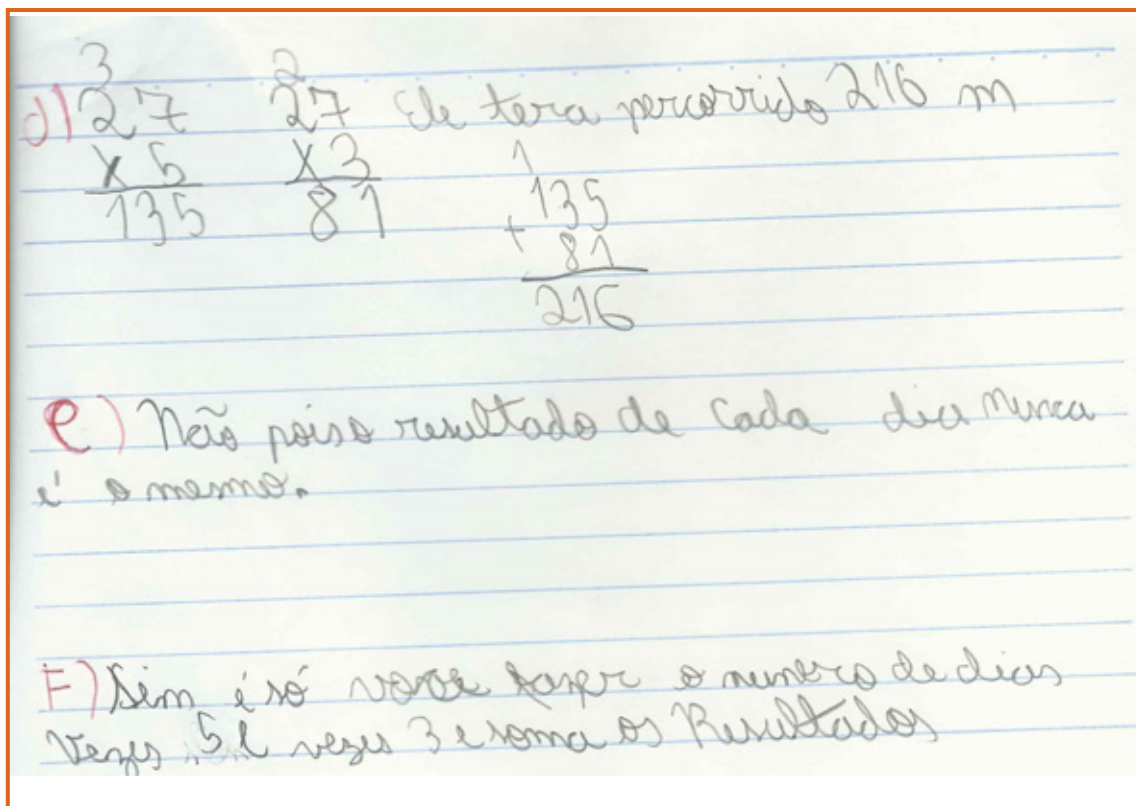 3 2
d) 27 27 Ele tera percorrido 216 m
x 5 x 3 1
135 81 135
+ 81
216
e) Não poiso resultado de Cada dia nunca
é o mesmo.
F) Sim é só você fazer o numero de dias
Vezes 5 e vezes 3 e soma os Resultados